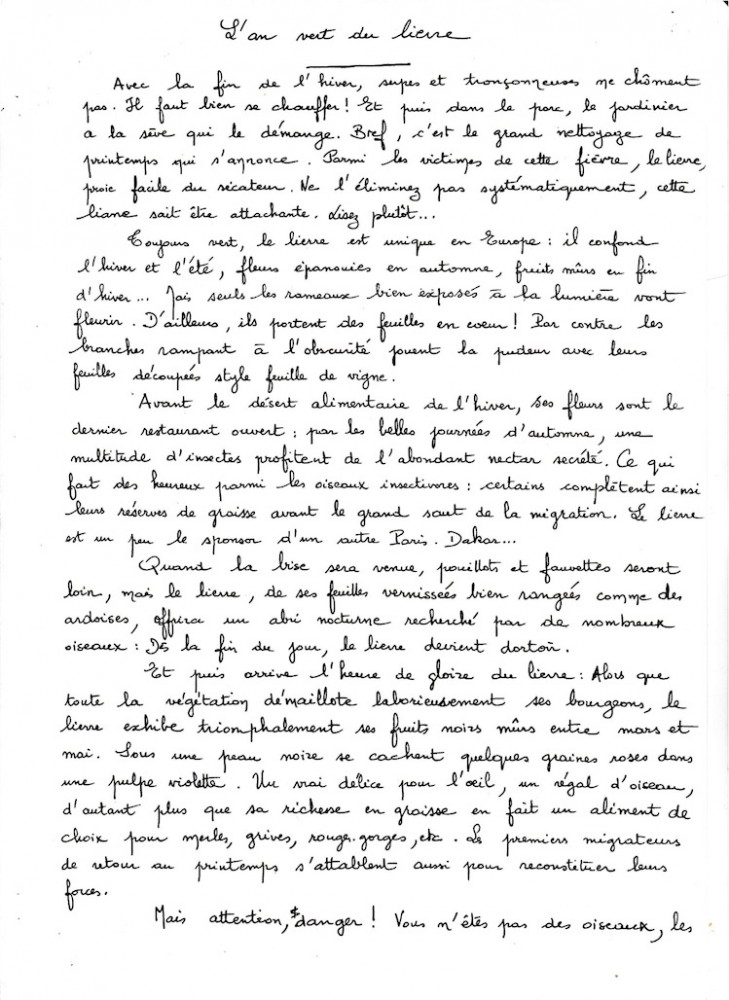 L'an vert du lierre
Avec la fin de l'hiver, serpes et tronçonneuses ne chôment
pas. Il faut bien se chauffer ! Et puis dans le parc, le jardinier
a la sève qui le démange. Bref, c'est le grand nettoyage de
printemps qui s'annonce. Parmi les victimes de cette fièvre, le lierre,
proie facile du sécateur. Ne l'éliminez pas systématiquement, cette
liane sait être attachante. Lisez plutôt...
Toujours vert, le lierre est unique en Europe : il confond
l'hiver et l'été, fleurs épanouies en automne, fruits mûrs en fin
d'hiver... Mais seuls les rameaux bien exposés à la lumière vont
fleurir. D'ailleurs, ils portent des feuilles en coeur ! Par contre les
branches rampant à l'obscurité jouent la pudeur avec leurs
feuilles découpées style feuille de vigne.
Avant le désert alimentaire de l'hiver, ses fleurs sont le
dernier restaurant ouvert : par les belles journées d'automne, une
multitude d'insectes profitent de l'abondant nectar secrété. Ce qui
fait des heureux parmi les oiseaux insectivores : certains complètent ainsi
leurs réserves de graisse avant le grand saut de la migration. Le lierre
est un peu le sponsor d'un autre Paris. Dakar...
Quand la bise sera venue, pouillots et fauvettes seront
loin, mais le lierre, de ses feuilles vernissées bien rangées comme des
ardoises, offrira un abri nocturne recherché par de nombreux
oiseaux : Dès la fin du jour, le lierre devient dortoir.
Et puis arrive l'heure de gloire du lierre : Alors que
toute la végétation démaillote laborieusement ses bourgeons, le
lierre exhibe triomphalement ses fruits noirs mûrs entre mars et
mai. Sous une peau noire se cachent quelques graines roses dans
une pulpe violette. Un vrai délice pour l'œil, un régal d'oiseau,
d'autant plus que sa richesse en graisse en fait un aliment de
choix pour merles, grives, rouge.gorges, etc. Les premiers migrateurs
de retour au printemps s'attablent aussi pour reconstituer leurs
forces.
Mais attention, danger ! Vous n'êtes pas des oiseaux, les